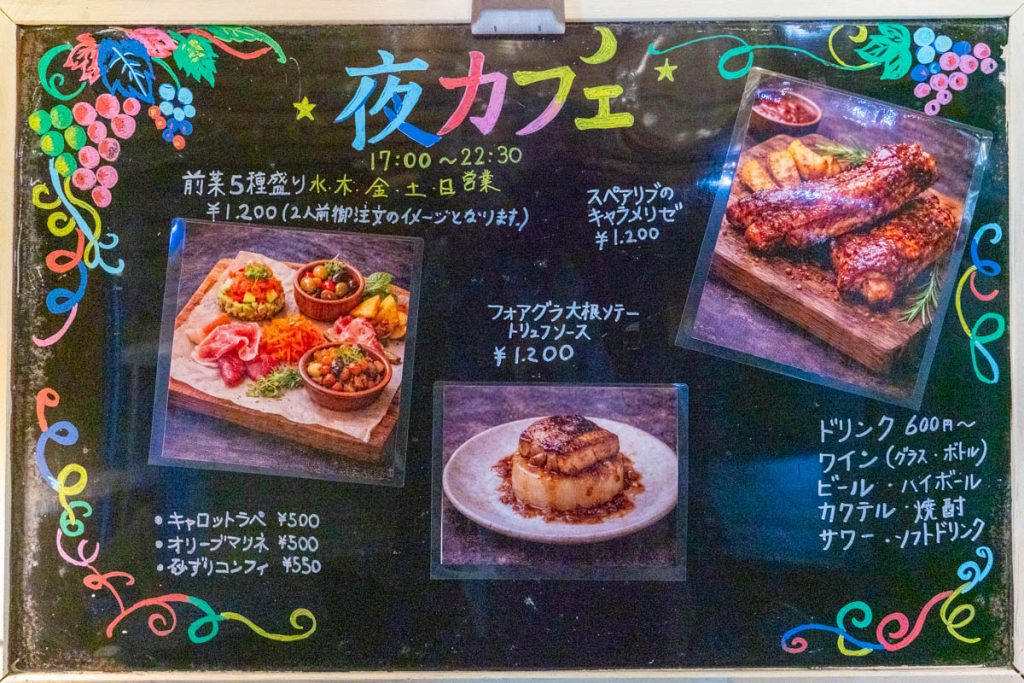 夜カフェ
17:00～22:30
水・木・金・土・日営業
前菜5種盛り
¥1.200(2人前御注文のイメージとなります。)
スペアリブの
キャラメリゼ
¥1.200
フォアグラ大根ソテー
トリュフソース
¥1.200
・キャロットラペ ¥500
・オリーブマリネ ¥500
・砂ずりコンフィ ¥550
ドリンク 600円～
ワイン(グラス・ボトル)
ビール・ハイボール
カクテル・焼酎
サワー・ソフトドリンク